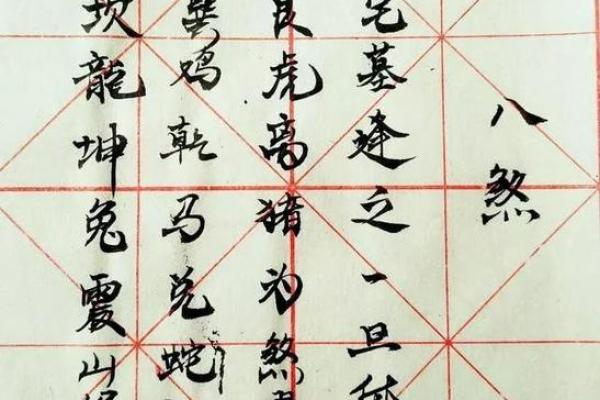 八煞
坎龍坤兔震山
巽鸡乾马兑蛇
艮虎离猪为煞
宅墓逢之一旦